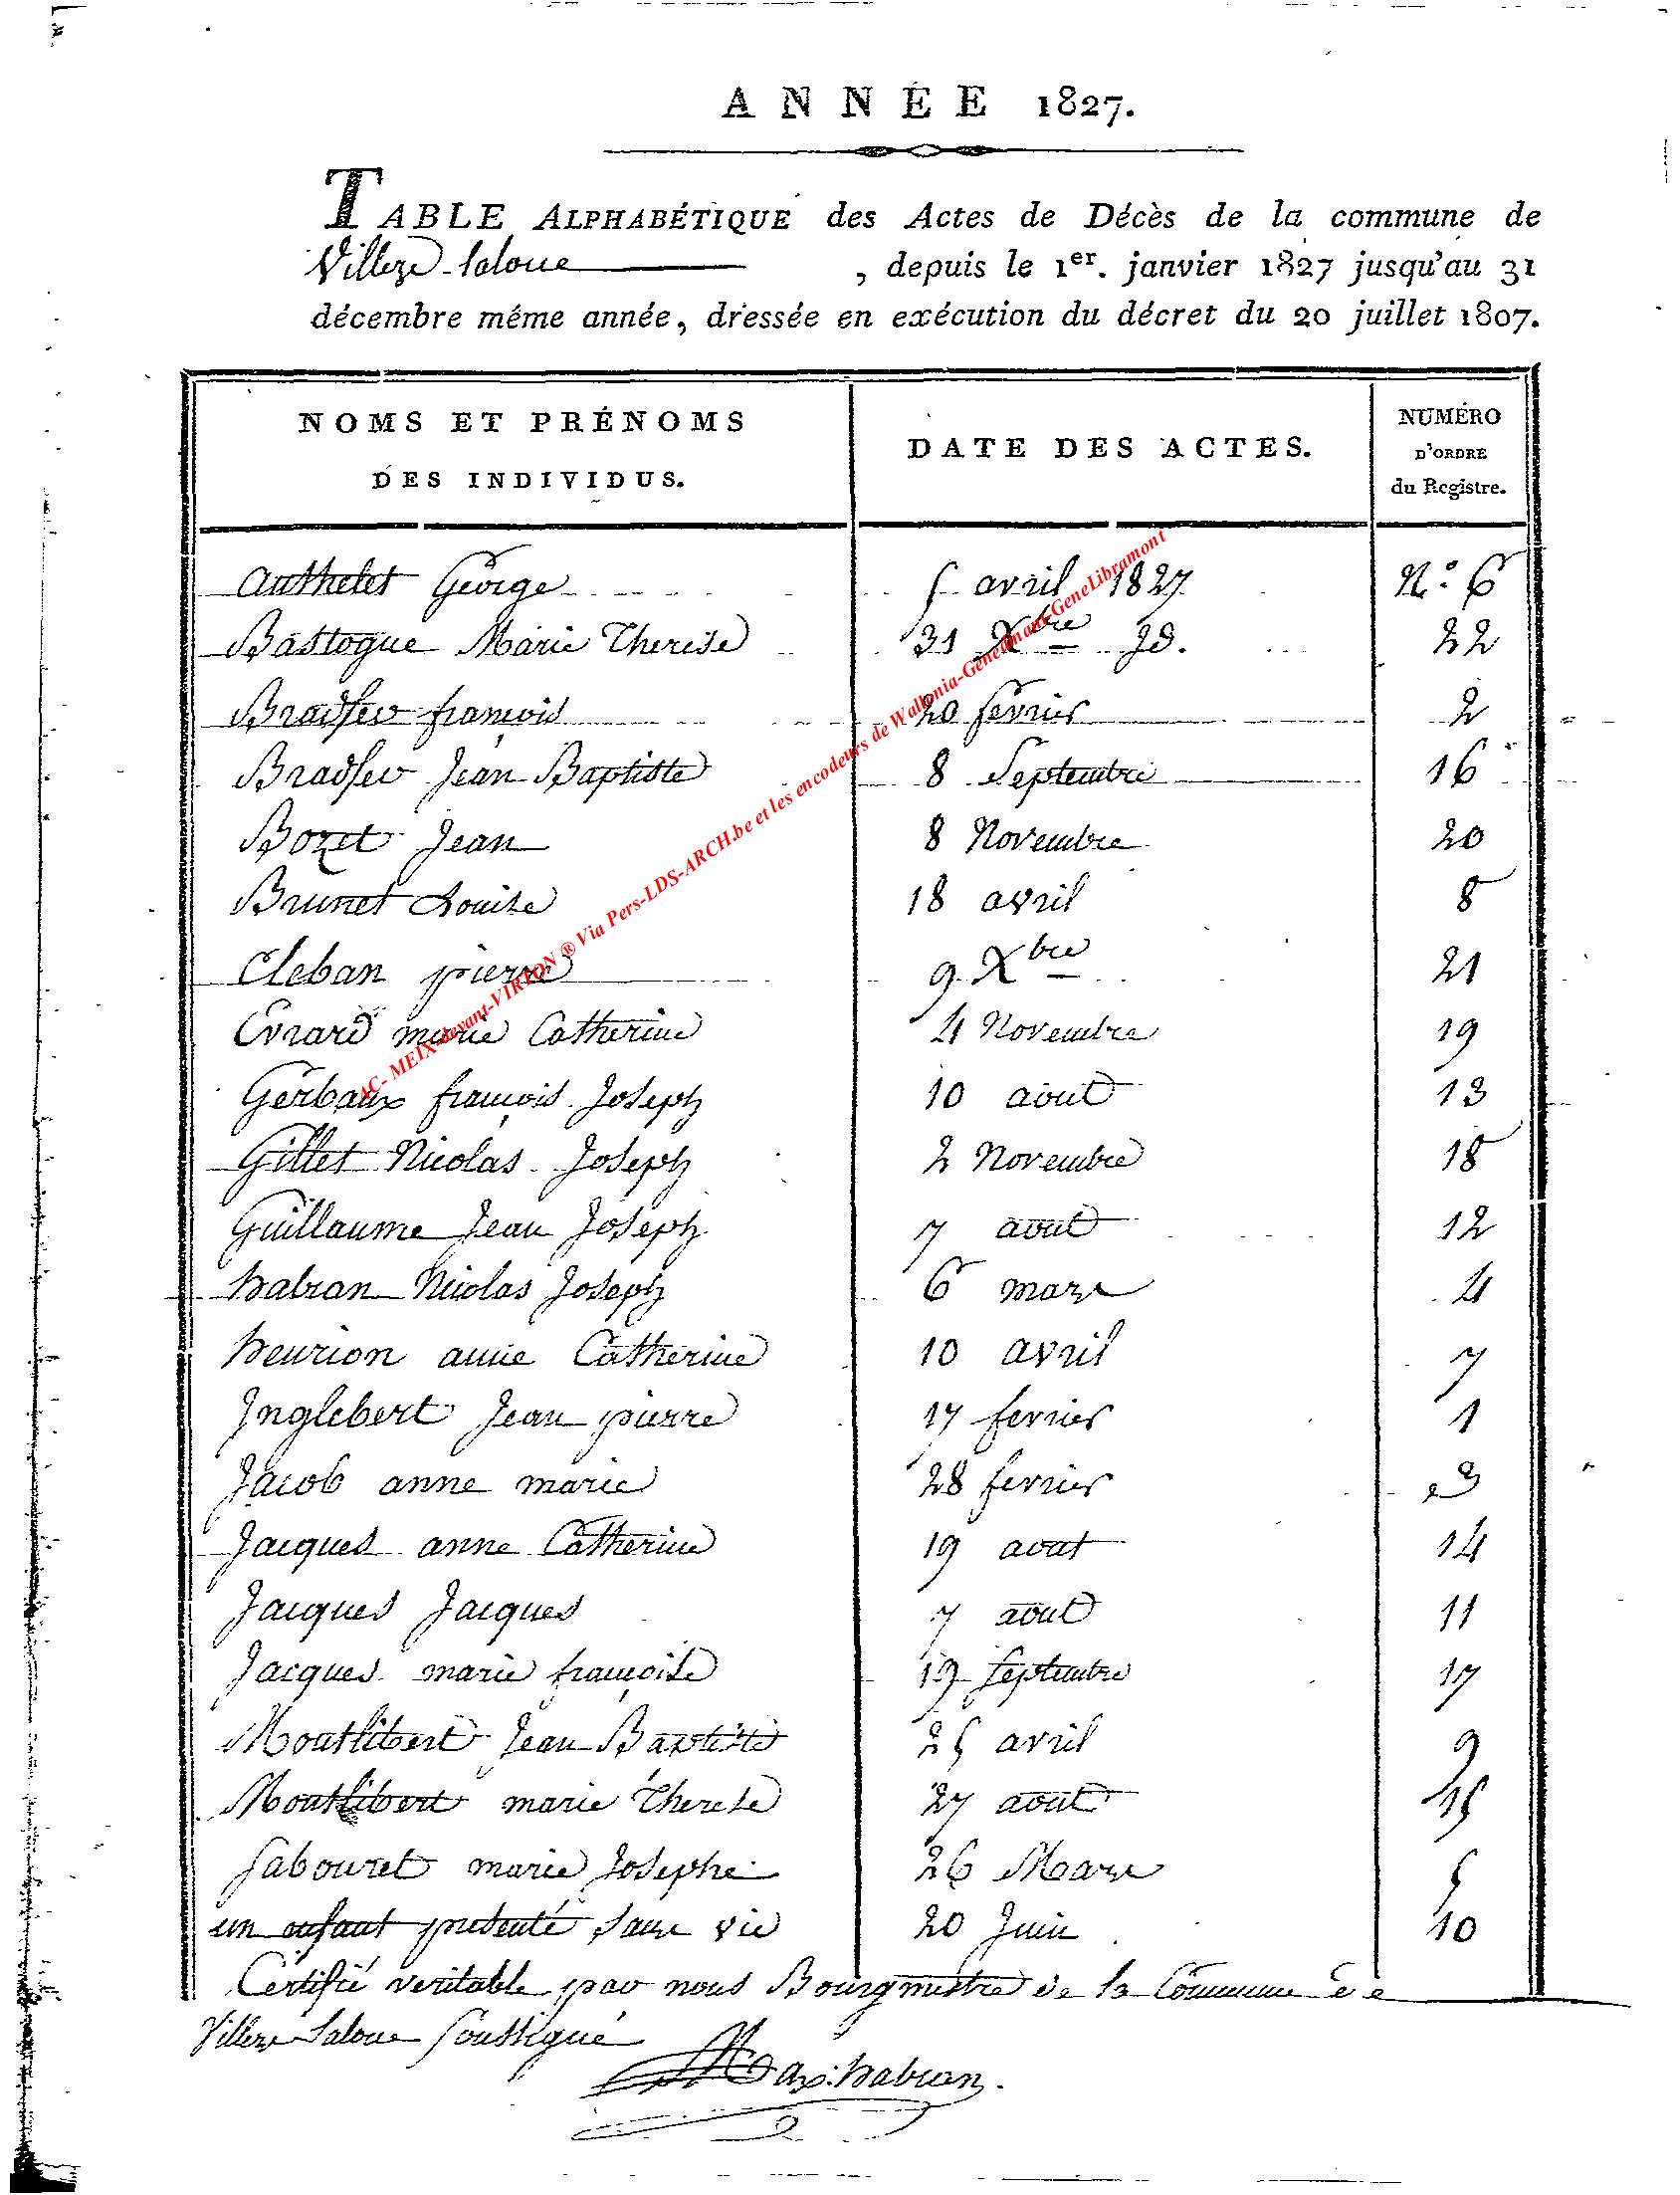 ANNÉE 1827.
TABLE ALPHABÉTIQUE des Actes de Décès de la commune de
Villers-laloue , depuis le 1er. janvier 1827 jusqu'au 31
décembre méme année, dressée en exécution du décret du 20 juillet 1807.
NOMS ET PRÉNOMS DES INDIVIDUS. DATE DES ACTES. NUMÉRO D'ORDRE du Registre.
Authelet George 5 avril 1827 N.o 6
Bastogne Marie Therese 31 Xbre Id. 22
Bradfer françois 20 fevrier 2
Bradfer Jean Baptiste 8 Septembre 16
Bozet Jean 8 Novembre 20
Brunet Louise 18 avril 8
Cleban pierre 9 Xbre 21
Evrard marie Catherine 4 Novembre 19
Gerbaux françois Joseph 10 aout 13
Gillet Nicolas Joseph 2 Novembre 18
Guillaume Jean Joseph 7 aout 12
habran Nicolas Joseph 6 mars 4
henrion anne Catherine 10 avril 7
Inglebert Jean pierre 17 fevrier 1
Jacob anne marie 28 fevrier 3
Jacques anne Catherine 19 aout 14
Jacques Jacques 7 aout 11
Jacques marie françoise 19 Septembre 17
Montlibert Jean Baptiste 25 avril 9
Montlibert marie Therese 27 aout 15
Sabouret marie Josephe 26 Mars 5
un enfant presenté sans vie 20 Juin 10
Certifié veritable par nous Bourgmestre de la Commune de
Villers Laloue Soussigné
Max: habran.
AC- MEIX-devant-VIRTON ® Via Pers-LDS-ARCH.be et les encodeurs de Wallonia-Genedinant-GeneLibramont